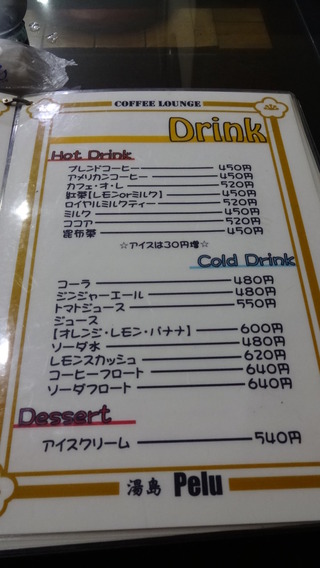 COFFEE LOUNGE
Drink
Hot Drink
ブレンドコーヒー 450円
アメリカンコーヒー 450円
カフェ・オ・レ 520円
紅茶【レモンorミルク】 450円
ロイヤルミルクティー 520円
ミルク 450円
ココア 520円
昆布茶 450円
☆アイスは30円増☆
Cold Drink
コーラ 480円
ジンジャーエール 480円
トマトジュース 550円
ジュース
【オレンジ・レモン・バナナ】 600円
ソーダ水 480円
レモンスカッシュ 620円
コーヒーフロート 640円
ソーダフロート 640円
Dessert
アイスクリーム 540円
湯島 Pelu